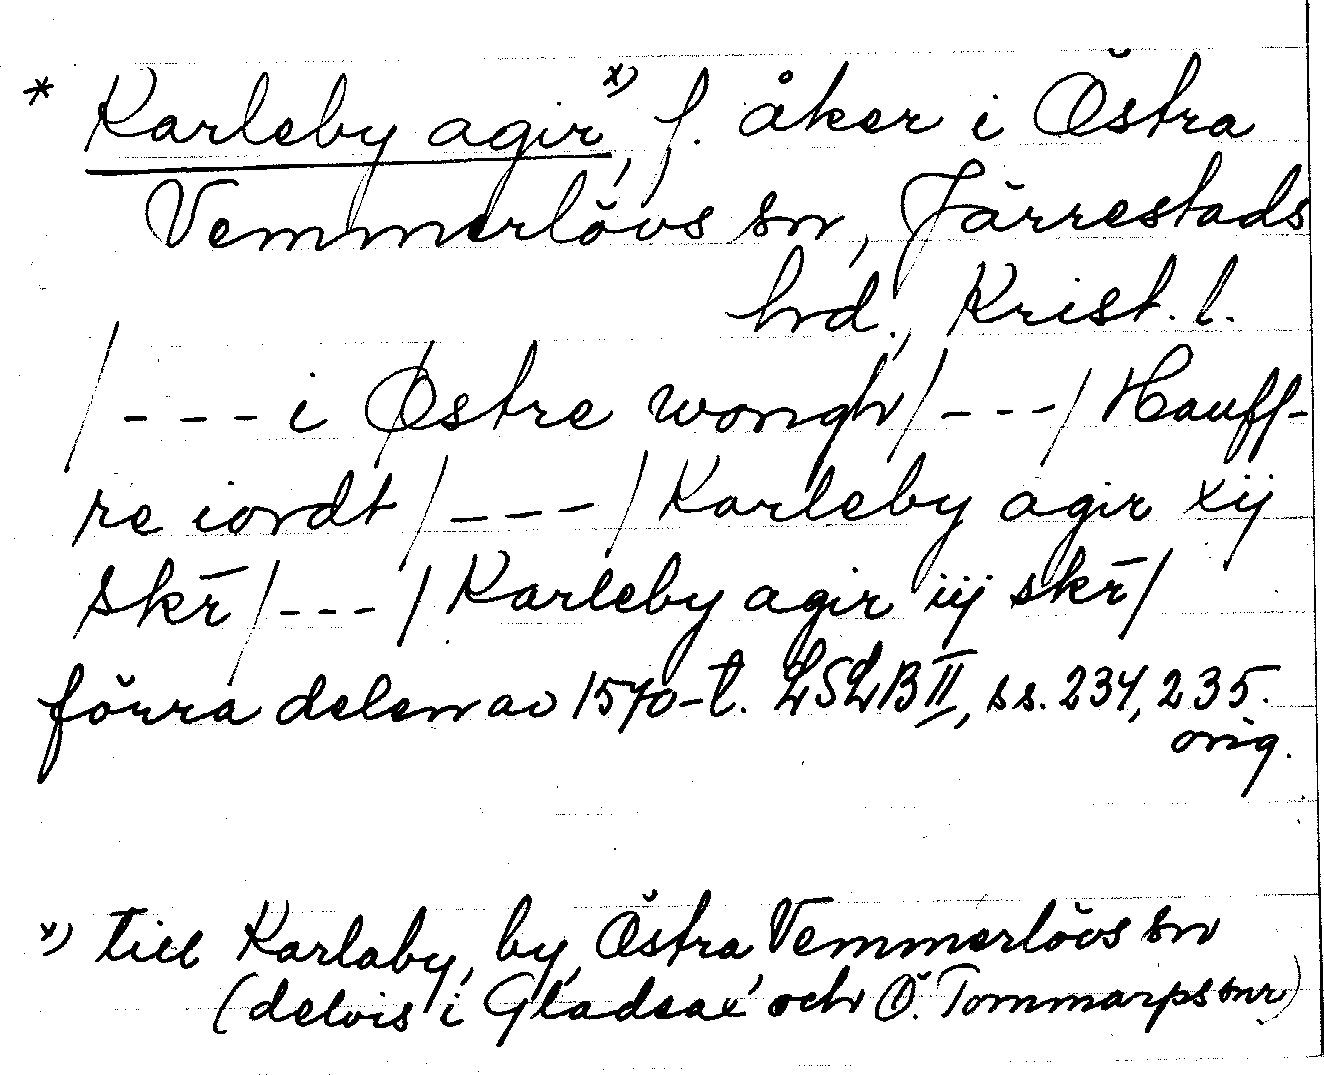 * Karleby agir x), f. åker i Östra
Vemmerlövs sn, Järrestads
hrd., Krist. l.
/---i Østre wongh/---/Hauff-
re iordt/---/Karleby agir xij
skr̄/---/Karleby agir iij skr̄/
förra delen av 1570-t. LSLB II, ss. 234, 235.
orig.
x) till Karlaby, by, Östra Vemmerlövs sn
(delvis i Gladsax' och Ö. Tommarps snr)